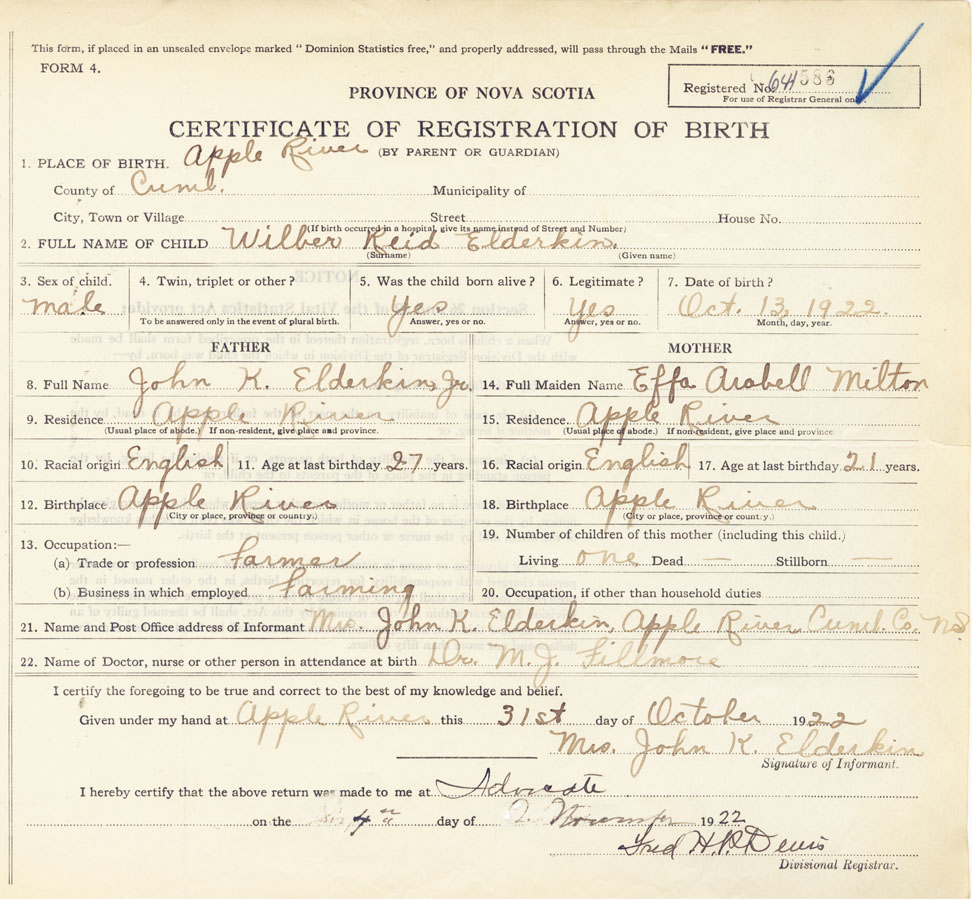 This form, if placed in an unsealed envelope marked "Dominion Statistics free," and properly addressed, will pass through the Mails "FREE."
FORM 4.
Registered No. 641586
For use of Registrar General on
PROVINCE OF NOVA SCOTIA
CERTIFICATE OF REGISTRATION OF BIRTH
(BY PARENT OR GUARDIAN)
1. PLACE OF BIRTH. Apple River
County of Cumb. Municipality of
City, Town or Village Street House No.
(If birth occurred in a hospital, give its name instead of Street and Number)
2. FULL NAME OF CHILD Wilber Reid Elderkin.
(Surname) (Given name)
3. Sex of child. 4. Twin, triplet or other? 5. Was the child born alive? 6. Legitimate? 7. Date of birth?
male Yes Yes Oct. 13, 1922.
To be answered only in the event of plural birth. Answer, yes or no. Answer, yes or no. Month, day, year.
FATHER MOTHER
8. Full Name John K. Elderkin, Jr. 14. Full Maiden Name Effa Arabell Milton
9. Residence Apple River 15. Residence. Apple River
(Usual place of abode.) If non-resident, give place and province. (Usual place of abode.) If non-resident, give place and province
10. Racial origin English 11. Age at last birthday 27 years. 16. Racial origin English 17. Age at last birthday 21 years.
12. Birthplace Apple River 18. Birthplace Apple River
(City or place, province or country.) (City or place, province or country.)
13. Occupation:— 19. Number of children of this mother (including this child.)
(a) Trade or profession farmer Living one Dead — Stillborn —
(b) Business in which employed farming 20. Occupation, if other than household duties
21. Name and Post Office address of Informant Mrs. John K. Elderkin, Apple River, Cumb. Co. N.S
22. Name of Doctor, nurse or other person in attendance at birth Dr. M. J. Fillmore
I certify the foregoing to be true and correct to the best of my knowledge and belief.
Given under my hand at Apple River this 31st day of October 1922
Mrs. John K. Elderkin
Signature of Informant.
I hereby certify that the above return was made to me at Advocate
on the 4 day of November 1922
Fred H. Denis
Divisional Registrar.